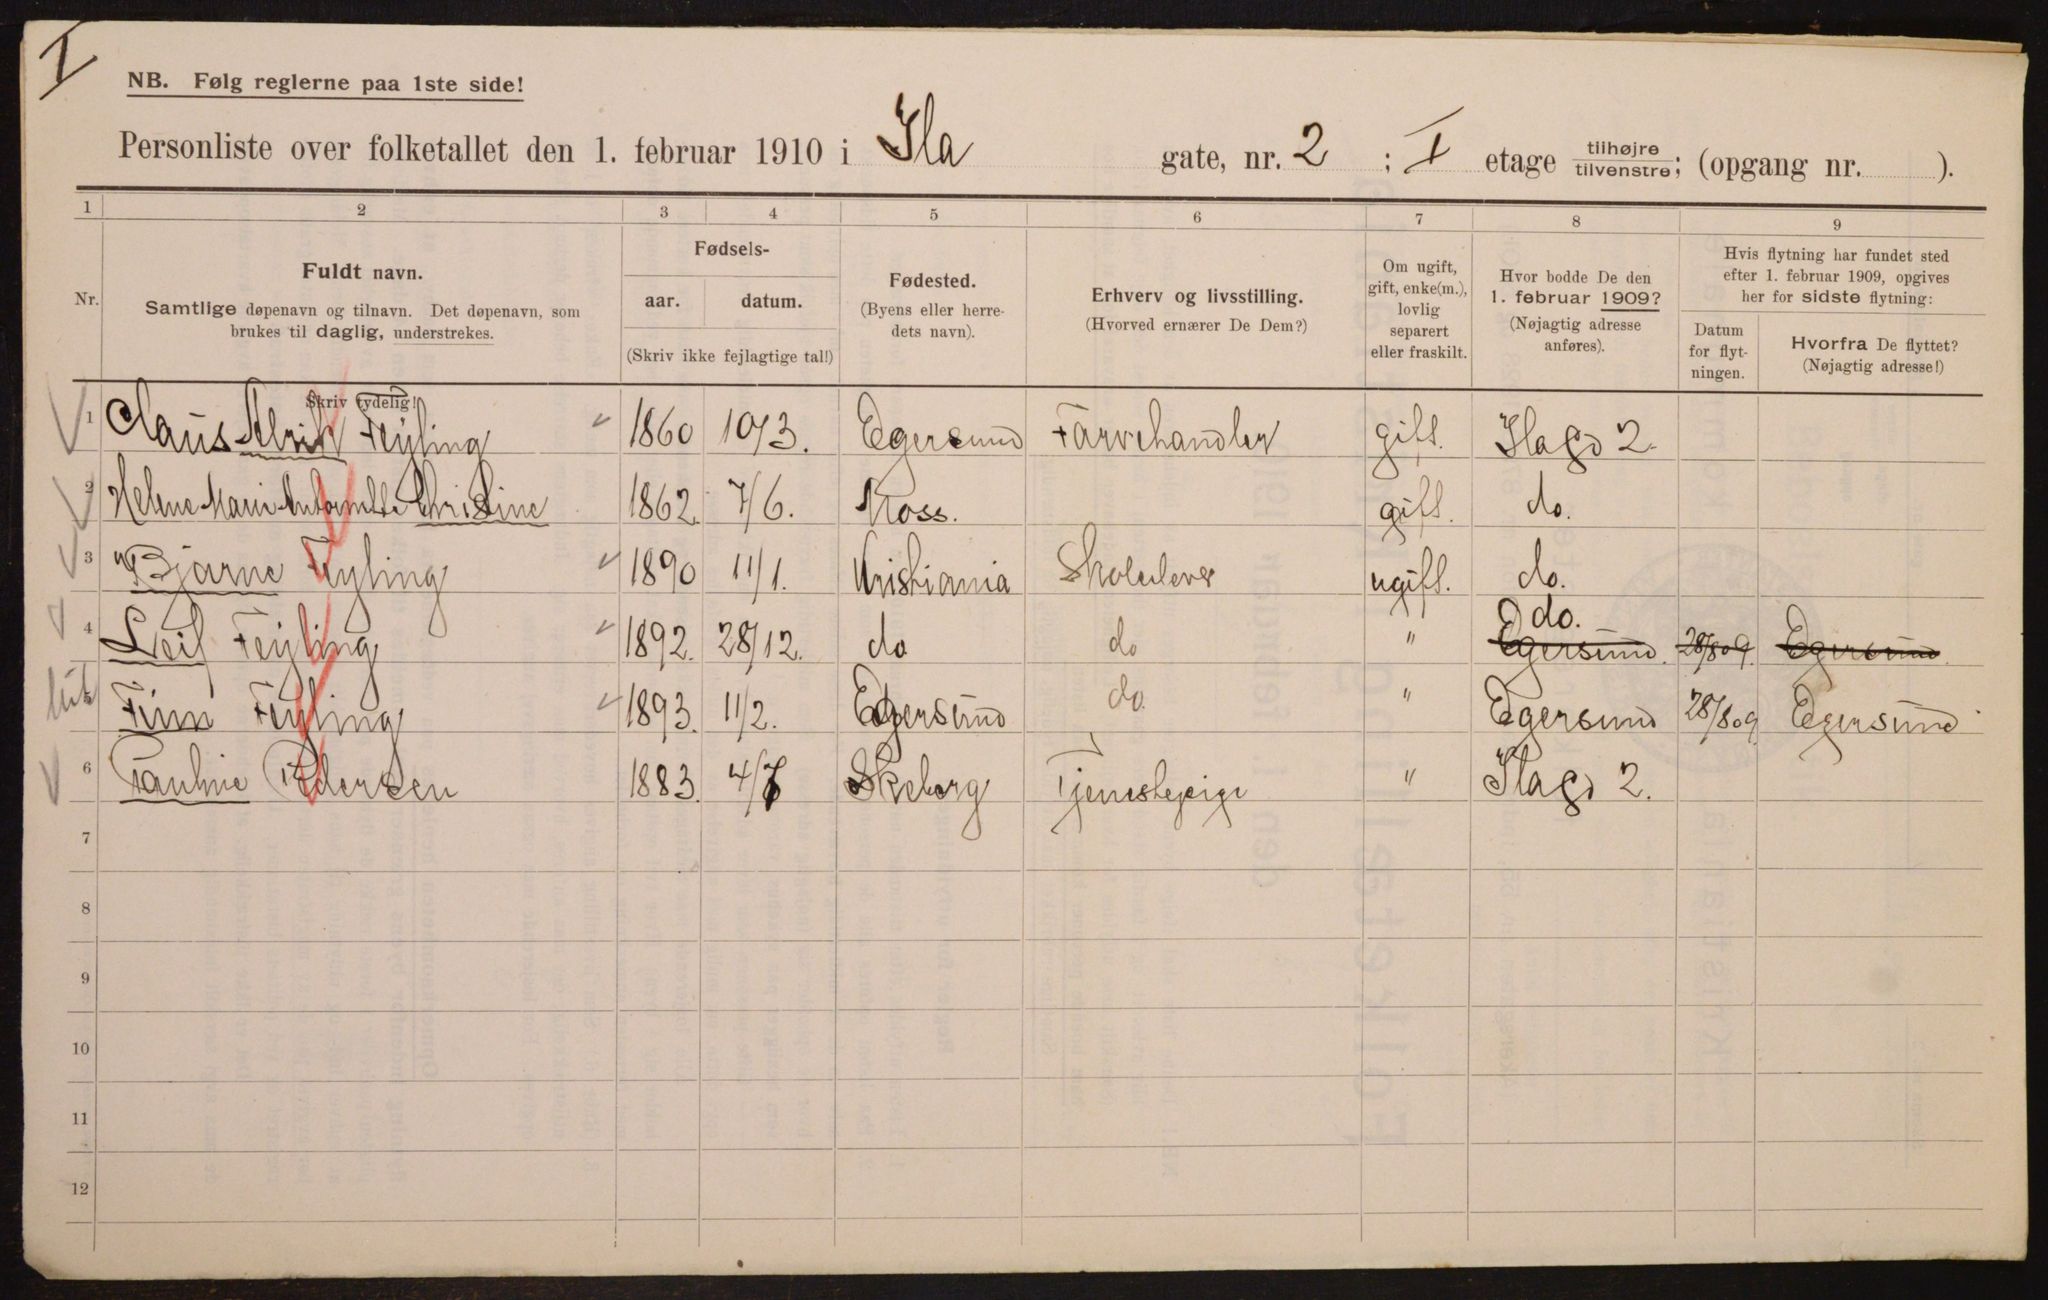 I
NB. Følg reglerne paa 1ste side!
Personliste over folketallet den 1. februar 1910 i Ila gate, nr. 2 ; I etage tilhøjre/tilvenstre; (opgang nr. ).
1 2 3 4 5 6 7 8 9
Nr. Fuldt navn. Samtlige døpenavn og tilnavn. Det døpenavn, som brukes til daglig, understrekes.
Fødsels- aar. datum. (Skriv ikke fejlagtige tal!)
Fødested. (Byens eller herredets navn).
Erhverv og livsstilling. (Hvorved ernærer De Dem?)
Om ugift, gift, enke(m.), lovlig separert eller fraskilt.
Hvor bodde De den 1. februar 1909? (Nøjagtig adresse anføres).
Hvis flytning har fundet sted efter 1. februar 1909, opgives her for sidste flytning:
Datum for flytningen. Hvorfra De flyttet? (Nøjagtig adresse!)
Skriv tydelig!
1 Claus Alrik Feyling 1860 10/3. Egersund Farvehandler gift. Ilagd 2.
2 Helene Marie Antonette Christine 1862. 7/6. Moss. gift. do.
3 Bjarne Feyling 1890 11/1. Kristiania Skoleelever ugift. do.
do.
4 Leif Feyling 1892. 28/12. do do " Egersund. 28/8 09. Egersund.
5 Finn Feyling 1893. 11/2. Egersund do. " Egersund 28/8 09 Egersund
6 Pauline Pedersen 1883. 4/7 Skeberg Tjenestepige " Ilagd 2.
7
8
9
10
11
12